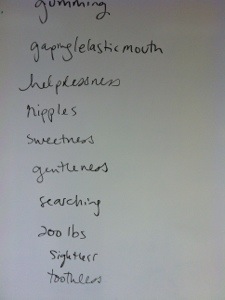 gumming
gaping/elastic mouth
helplessness
nipples
sweetness
gentleness
searching
200 lbs
sightless
toothless